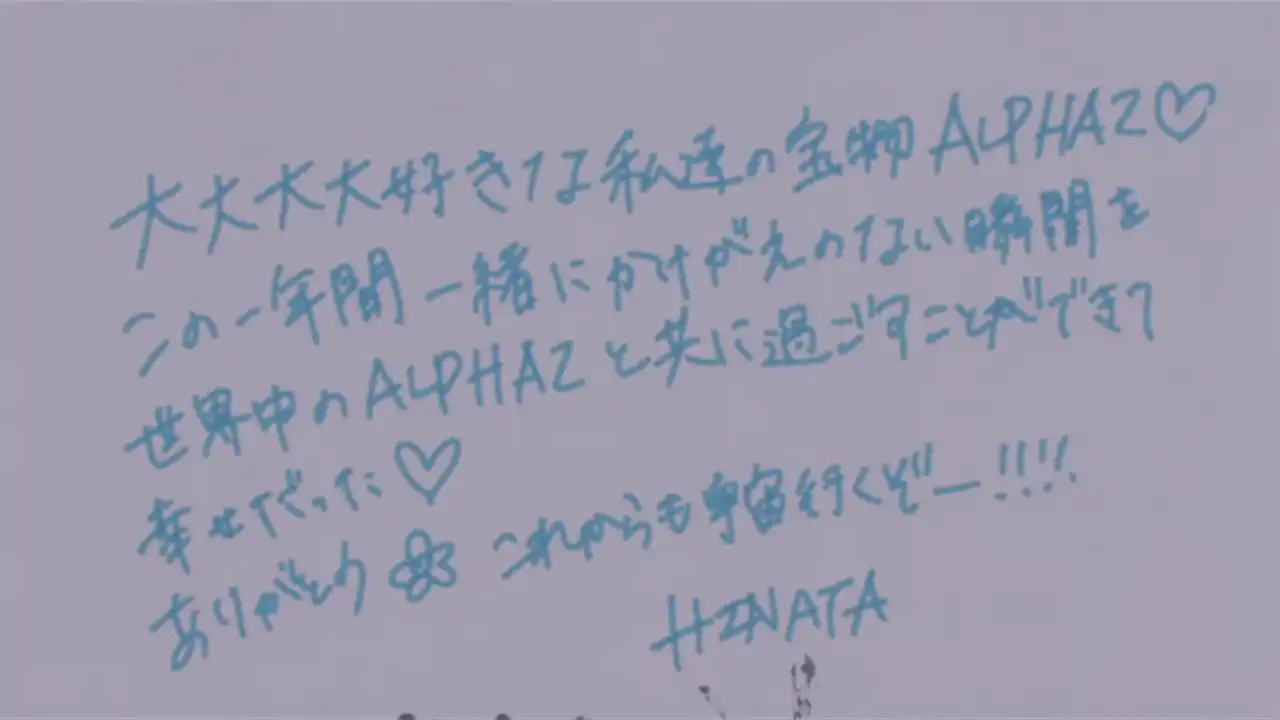 大大大大好きな私達の宝物ALPHAZ♡
この一年間一緒にかけがえのない瞬間を
世界中のALPHAZと共に過ごすことができて
幸せだった♡
ありがとう これからも宇宙行くぞー!!!!
HINATA